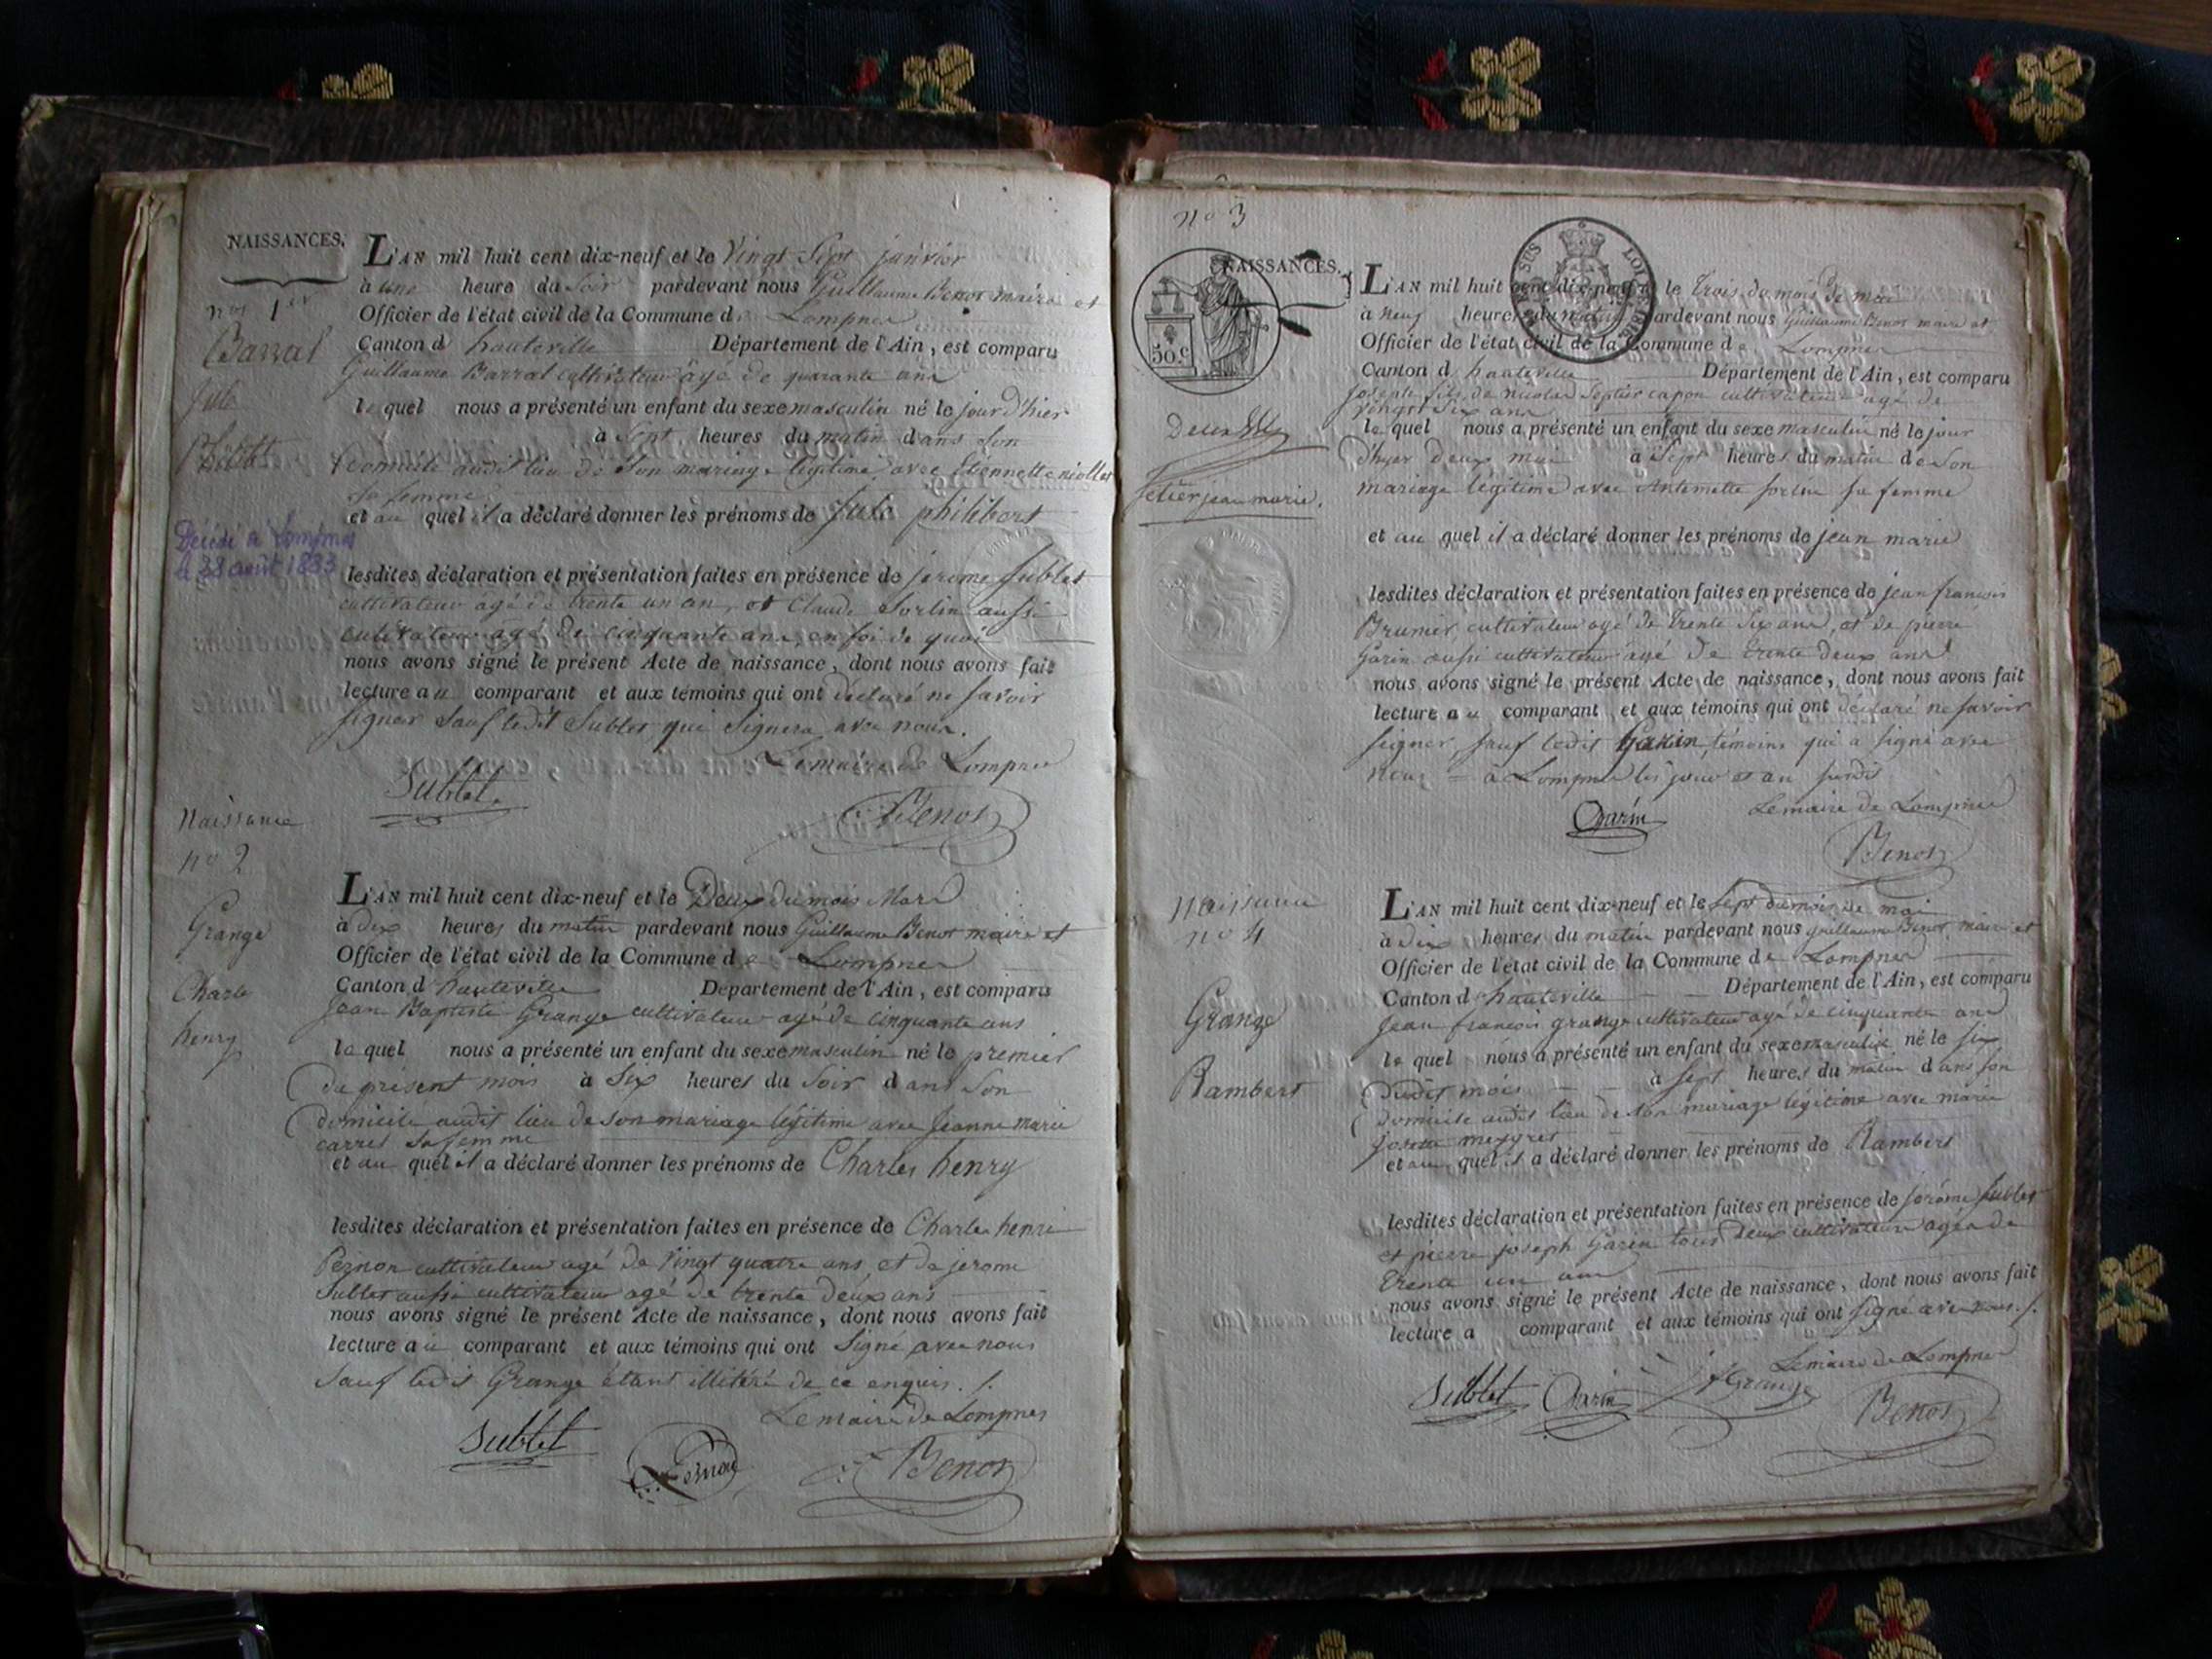 NAISSANCES.
nos 1er
Barral
Jule
Décédé à Lompnes
le 28 août 1883
L'AN mil huit cent dix-neuf et le Vingt Sept janvier
à une heure du Soir pardevant nous Guillaume Benot maire et
Officier de l'état civil de la Commune de Lompnes
Canton d hauteville Département de l'Ain, est comparu
Guillaume Barral cultivateur âgé de quarante ans
lequel nous a présenté un enfant du sexe masculin né le jour d'hier
à Sept heures du matin dans Son
domicile audit lieu de Son mariage légitime avec Etiennette niollet
sa femme
et au quel il a déclaré donner les prénoms de Jule philibert
lesdites déclaration et présentation faites en présence de jerome Sublet
cultivateur âgé de trente un an, et Claude Sorlin aussi
cultivateur âgé de cinquante ans, en foi de quoi
nous avons signé le présent Acte de naissance, dont nous avons fait
lecture au comparant et aux témoins qui ont déclaré ne savoir
signer Sauf ledit Sublet qui Signera avec nous.
Lemaire de Lompnes
Sublet
Benot
Naissance
no 2
Grange
Charle
henry
L'AN mil huit cent dix-neuf et le Deux du mois Mars
à dix heures du matin pardevant nous Guillaume Benot maire et
Officier de l'état civil de la Commune de Lompnes
Canton d hauteville Département de l'Ain, est comparu
Jean Baptiste Grange cultivateur agé de cinquante ans
lequel nous a présenté un enfant du sexe masculin né le premier
du présent mois à Six heures du Soir dans Son
domicile audit lieu de son mariage légitime avec Jeanne Marie
carrel Sa femme
et au quel il a déclaré donner les prénoms de Charles henry
lesdites déclaration et présentation faites en présence de Charle henri
Peznon cultivateur agé de Vingt quatre ans, et de jerome
Sublet aussi cultivateur agé de trente deux ans
nous avons signé le présent Acte de naissance, dont nous avons fait
lecture au comparant et aux témoins qui ont Signé avec nous
Sauf ledit Grange étant illitéré de ce enquis. /.
Lemaire de Lompnes
Sublet
Benot
no 3
NAISSANCES.
50 c
jean marie.
L'AN mil huit cent dix-neuf et le trois du mois de mai
à neuf heures du matin pardevant nous Guillaume Benot maire et
Officier de l'état civil de la Commune de Lompnes
Canton d hauteville Département de l'Ain, est comparu
joseph fils de nicolas capon cultivateur agé de
vingt Six ans
lequel nous a présenté un enfant du sexe masculin né le jour
d'hyer deux mai à Sept heures du matin de Son
mariage légitime avec Antoinette Sorlin sa femme
et au quel il a déclaré donner les prénoms de jean marie
lesdites déclaration et présentation faites en présence de jean françois
Brunier, cultivateur agé de trente Six ans, et de pierre
Garin aussi cultivateur âgé de trente deux ans
nous avons signé le présent Acte de naissance, dont nous avons fait
lecture au comparant et aux témoins qui ont déclaré ne savoir
signer, sauf ledit Garin, témoins qui a signé avec
nous = à Lompnes les jour et an susdit
Lemaire de Lompnes
Garin
Benot
naissance
no 4
Grange
Rambert
L'AN mil huit cent dix-neuf et le sept du mois de mai
à dix heures du matin pardevant nous guillaume Benot maire et
Officier de l'état civil de la Commune de Lompnes
Canton d hauteville Département de l'Ain, est comparu
Jean françois grange cultivateur agé de cinquante ans
lequel nous a présenté un enfant du sexe masculin né le six
dudit mois à Sept heures du matin dans son
domicile audit lieu de son mariage légitime avec marie
josette meygret
et au quel il a déclaré donner les prénoms de Rambert
lesdites déclaration et présentation faites en présence de jérôme Sublet
et pierre joseph Garin tous deux cultivateurs agés de
trente un ans
nous avons signé le présent Acte de naissance, dont nous avons fait
lecture a comparant et aux témoins qui ont signé avec nous. /.
Lemaire de Lompnes
Sublet Garin Grange
Benot